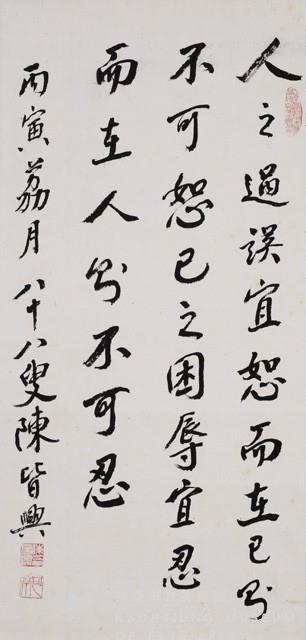 人之過誤宜恕而在己則
不可恕己之困辱宜忍
而在人則不可忍
丙寅荔月八十八叟陳皆興